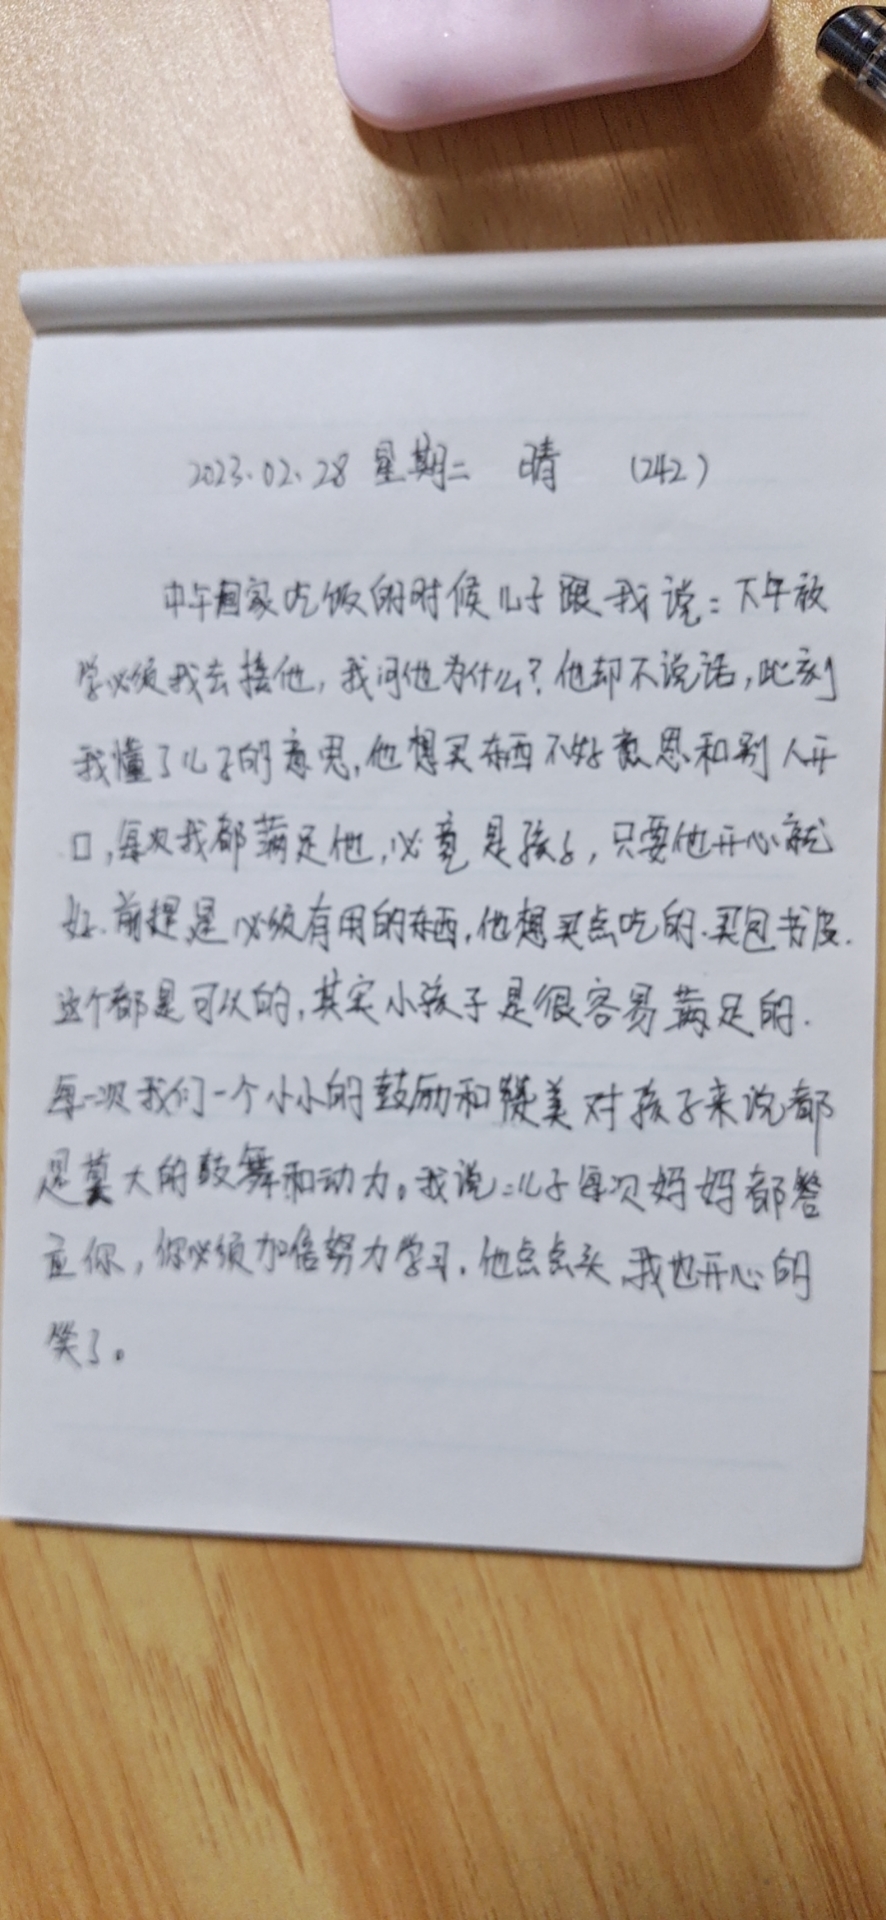 2023.02.28 星期二 晴 (242)
中午回家吃饭的时候儿子跟我说：下午放
学必须我去接他，我问他为什么？他却不说话，此刻
我懂了儿子的意思，他想买东西不好意思和别人开
口，每次我都满足他，必竟是孩子，只要他开心就
好.前提是必须有用的东西，他想买点吃的.买包书皮.
这个都是可以的，其实小孩子是很容易满足的.
每一次我们一个小小的鼓励和赞美对孩子来说都
是莫大的鼓舞和动力。我说：儿子每次妈妈都答
应你，你必须加倍努力学习.他点点头.我也开心的
笑了。